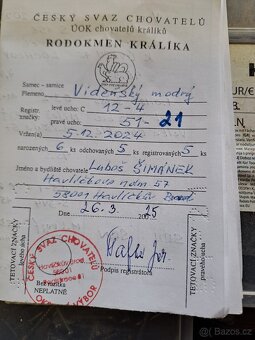 ČESKÝ SVAZ CHOVATELŮ
ÚOK chovatelů králíků
RODOKMEN KRÁLÍKA
Samec - samice
Plemeno Vídeňský modrý
Registr. značky levé ucho: C 12-4
pravé ucho: 51-21
Vržen(a) 5.12.2024
narozených 6 ks odchovaných 5 ks registrovaných 5 ks
Jméno a bydliště chovatele Luboš ŠIMÁNEK
Havlíčkovo nám 57
58001 Havlíčkův Brod
Dne 26.3. 2025
Podpis registrátora
TETOVACÍ ZNAČKY
levého ucha
TETOVACÍ ZNAČKY
pravého ucha
ČESKÝ SVAZ CHOVATELŮ
Bez razítka
NEPLATNÉ
Sbazar.cz